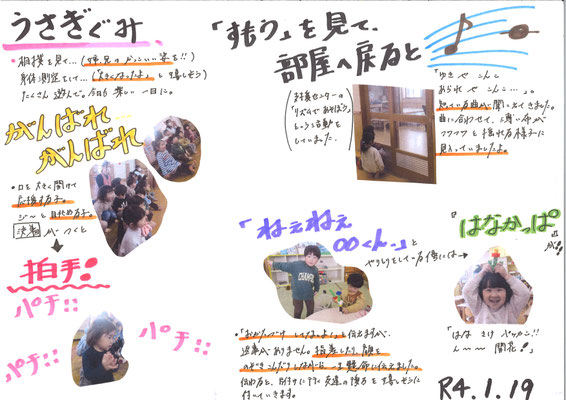 うさぎぐみ
・相撲を見て…(頑張れのかっこいい姿を!!)
身体測定をして…(大きくなったよ)と嬉しそう
たくさん遊んで。今日も楽しい一日に。
がんばれ
がんばれ
・口を大きく開けて
応援する子。
ジーッと見つめる子。
決着がつくと
拍手!
パチ!!
パチ!!
パチ!!
「すもう」を見て、
部屋へ戻ると
支援センターの
「リズムであそぼう」
という活動を
していました。
「ゆきやこんこ
あられやこんこ…♪」
知っている曲が聞こえてきました。
曲に合わせて、薄い布が
フワフワと揺れる様子に
見入っていましたよ。
「ねぇねぇ
〇〇くん…」と
やりとりをしている傍には→
・「おかたづけしてなぁよ!」と伝えますが、
返事がありません。指差したり、顔を
のぞきこんだりしながら一生懸命に伝えました。
伝わると、片付けに行く友達の後ろを嬉しそうに
付いていきます。
『はなかっぱ』
が!!
「はなさけパッカ〜ン!!
ん〜〜〜開花!」
R4.1.19